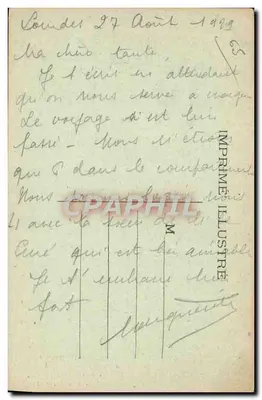 Lourdes 27 Août 1929
Ma chère tante,
Je t'écris en attendant
qu'on nous serve à manger
Le voyage s'est bien
passé - Nous n'étions
que 6 dans le compartiment
Nous
4 avec la sœur
Curé qui est bien aimable
Je t'embrasse bien
fort
Marguerite
IMPRIMÉ ILLUSTRÉ
M
CPAPHIL.com